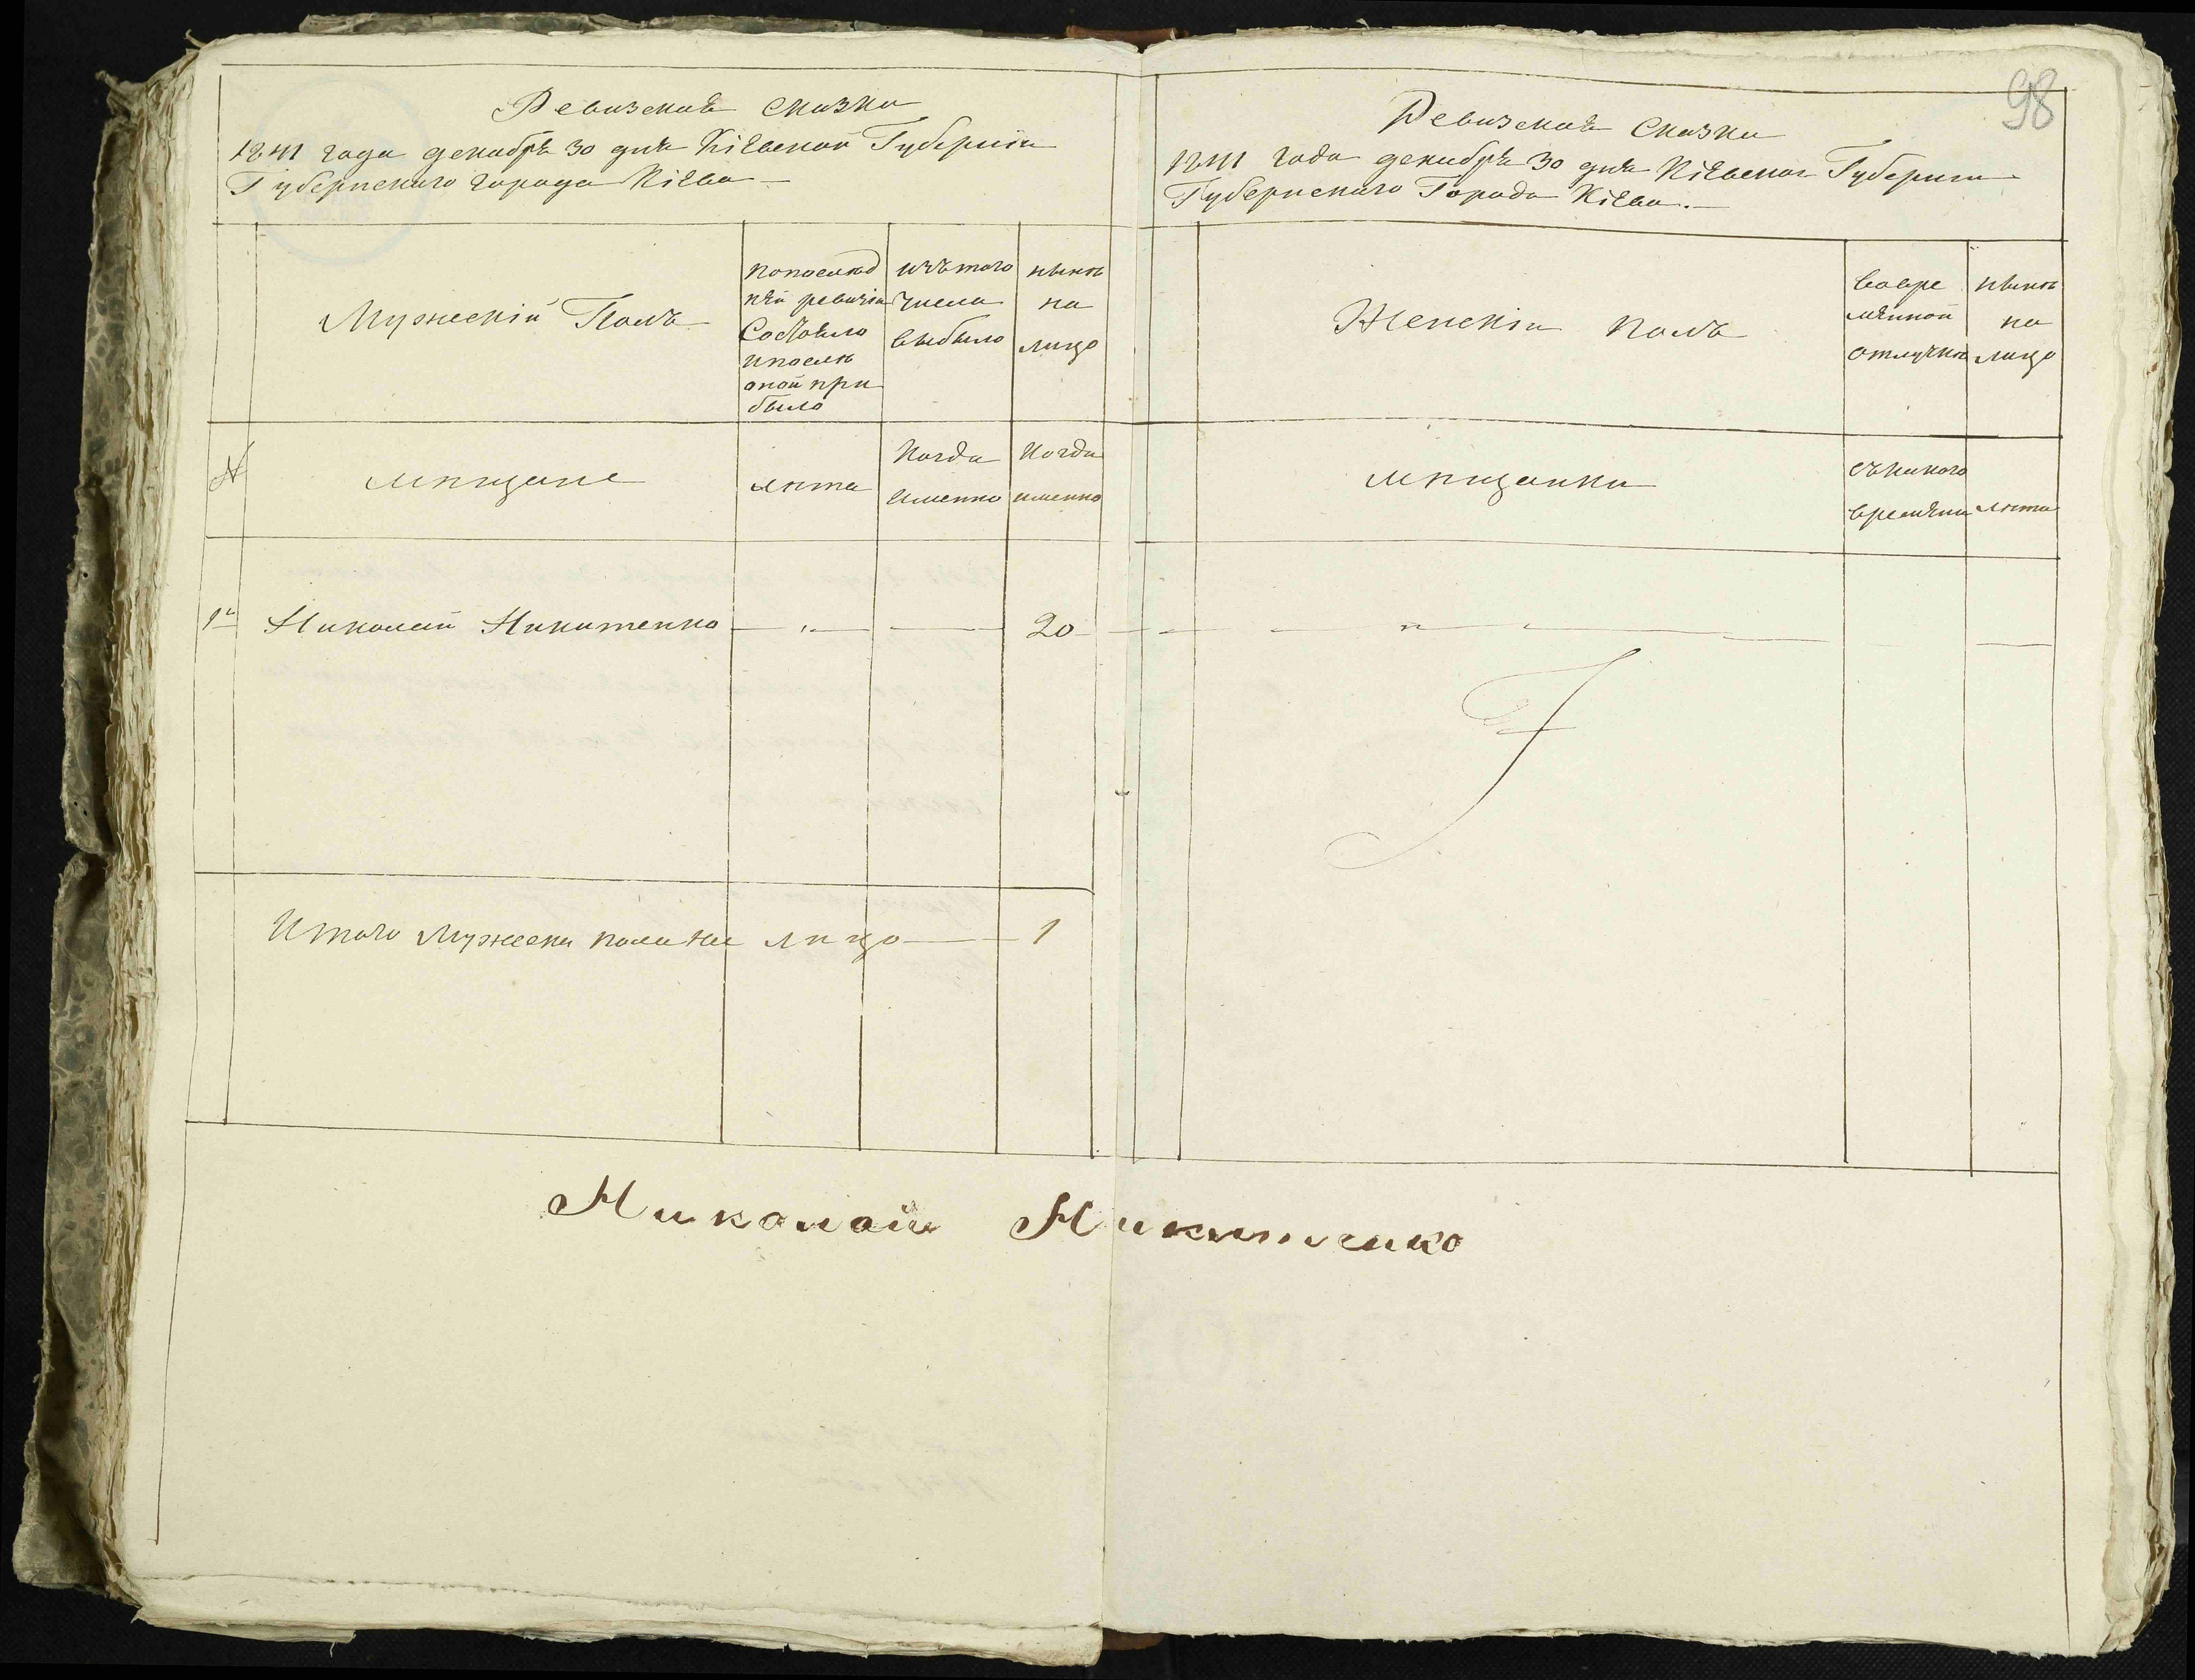 Ревизская сказка
1841 года декабря 30 дня Кіевской Губерніи
Губернскаго города Кіева
Мужескій Полъ
попослѣд
ней ревизіи
Состояло
ипослѣ
оной при
было
изъ того
числа
выбыло
нынѣ
на
лицо
№
мѣщане
лѣта
Когда
именно
Когда
именно
1й
Николай Никитенко
20
Итого мужеска пола на лицо 1
98
Ревизская Сказка
1841 года декабря 30 дня Кіевской Губерніи
Губернскаго Города Кіева.
Женскій полъ
вовре
мянной
отлучкѣ
нынѣ
на
лицо
мѣщанки
съкакого
времяни
лѣта
Николай Никитенко